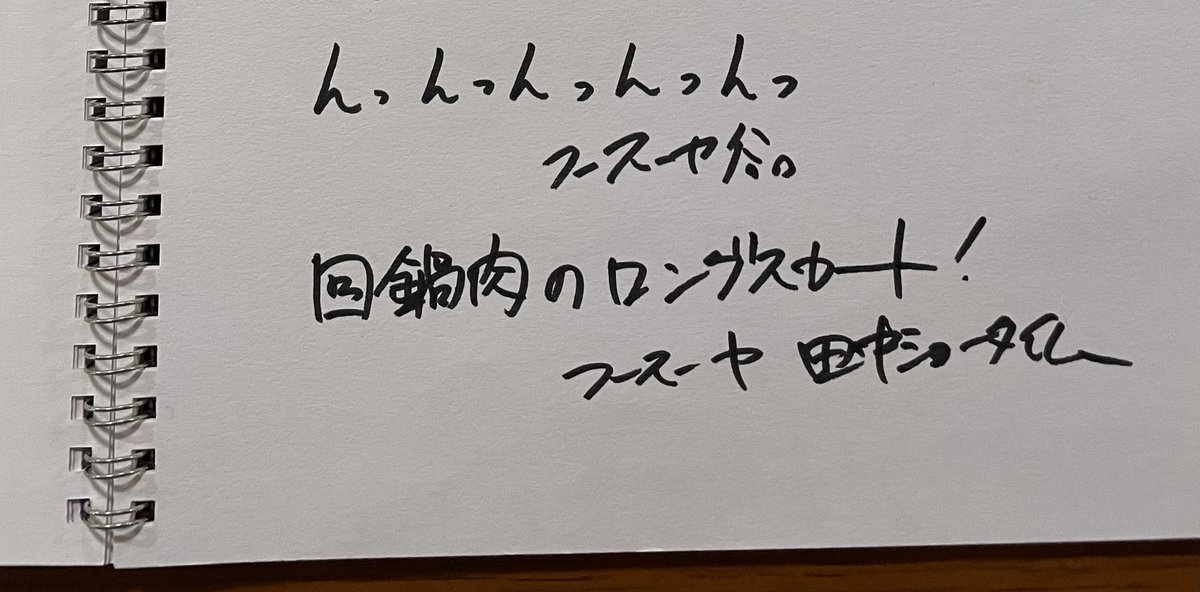 んっんっんっんっんっ
フースーヤ谷口
回鍋肉のロングスカート!
フースーヤ 田中ショータイム